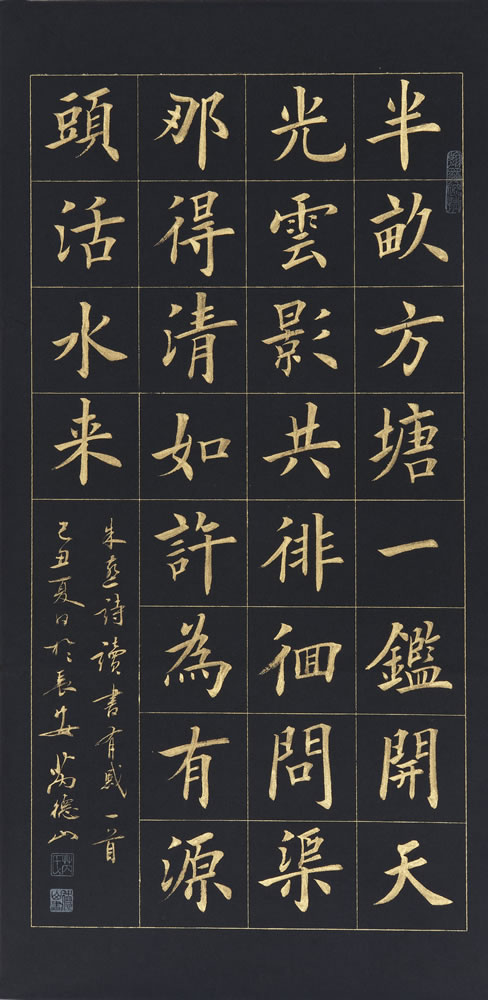 半畝方塘一鑑開天
光雲影共徘徊問渠
那得清如許為有源
頭活水来
朱熹詩讀書有感一首
己丑夏日於長安萬德山